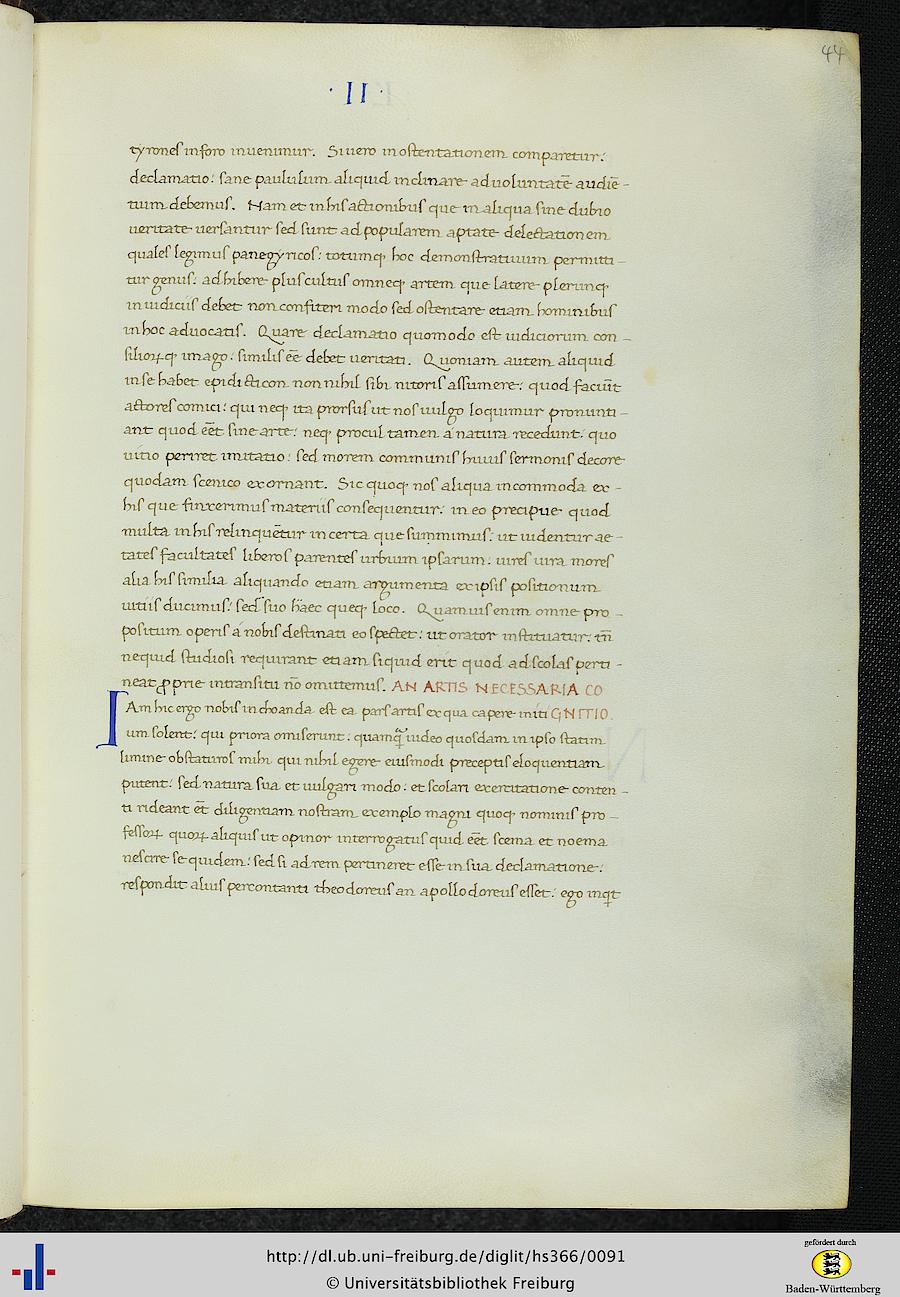 44
· II ·
tyrones inforo inuenimur. Siuero inostentationem comparetur:
declamatio: sane paululum aliquid inclinare aduoluntatē audiē-
tium debemus. Nam et inhis actionibus que in aliqua sine dubio
ueritate uersantur sed sunt adpopularem aptate delectationem
quales legimus panegyricos: totumq; hoc demonstratiuum permitti-
tur genus: adhibere plus cultus omneq; artem que latere plerunq;
iniudiciis debet non confiteri modo sed ostentare etiam hominibus
inhoc aduocatis. Quare declamatio quomodo est iudiciorum con-
siliorꝝq; imago: similis eē debet ueritati. Quoniam autem aliquid
inse habet epidicticon non nihil sibi nitoris assumere: quod faciūt
actores comici: qui neq; ita prorsus ut nos uulgo loquimur pronunti-
ant quod eēt sine arte: neq; procul tamen á natura recedunt: quo
uitio periret imitatio: sed morem communis huius sermonis decore
quodam scenico exornant. Sic quoq; nos aliqua incommoda ex-
his que finxerimus materiis consequentur: in eo precipue quod
multa inhis relinquētur incerta que summimus: ut uidentur ae-
tates facultates liberos parentes urbium ipsarum: uires iura mores
alia his similia aliquando etiam argumenta exipsis positionum
uitiis ducimus: sed suo haec queq; loco. Quamuis enim omne pro-
positum operis á nobis destinati eo spectet: ut orator instituatur: tn̄
nequid studiosi requirant etiam siquid erit quod adscolas perti-
neat ꝓprie intransitu nō omittemus. AN ARTIS NECESSARIA CO
IAm hic ergo nobis inchoanda est ea pars artis exqua capere initi GNITIO.
um solent: qui priora omiserunt: quamq̄ uideo quosdam in ipso statim
limine obstaturos mihi qui nihil egere eiusmodi preceptis eloquentiam
putent: sed natura sua et uulgari modo: et scolari exercitatione conten-
ti rideant ēt diligentiam nostram exemplo magni quoq; nominis pro-
fessoꝝ quoꝝ aliquis ut opinor interrogatus quid eēt scema et noema
nescire se quidem: sed si adrem pertineret esse in sua declamatione:
respondit alius percontanti theodoreus an apollodoreus esset: ego inqt
http://dl.ub.uni-freiburg.de/diglit/hs366/0091
© Universitätsbibliothek Freiburg
gefördert durch
Baden-Württemberg